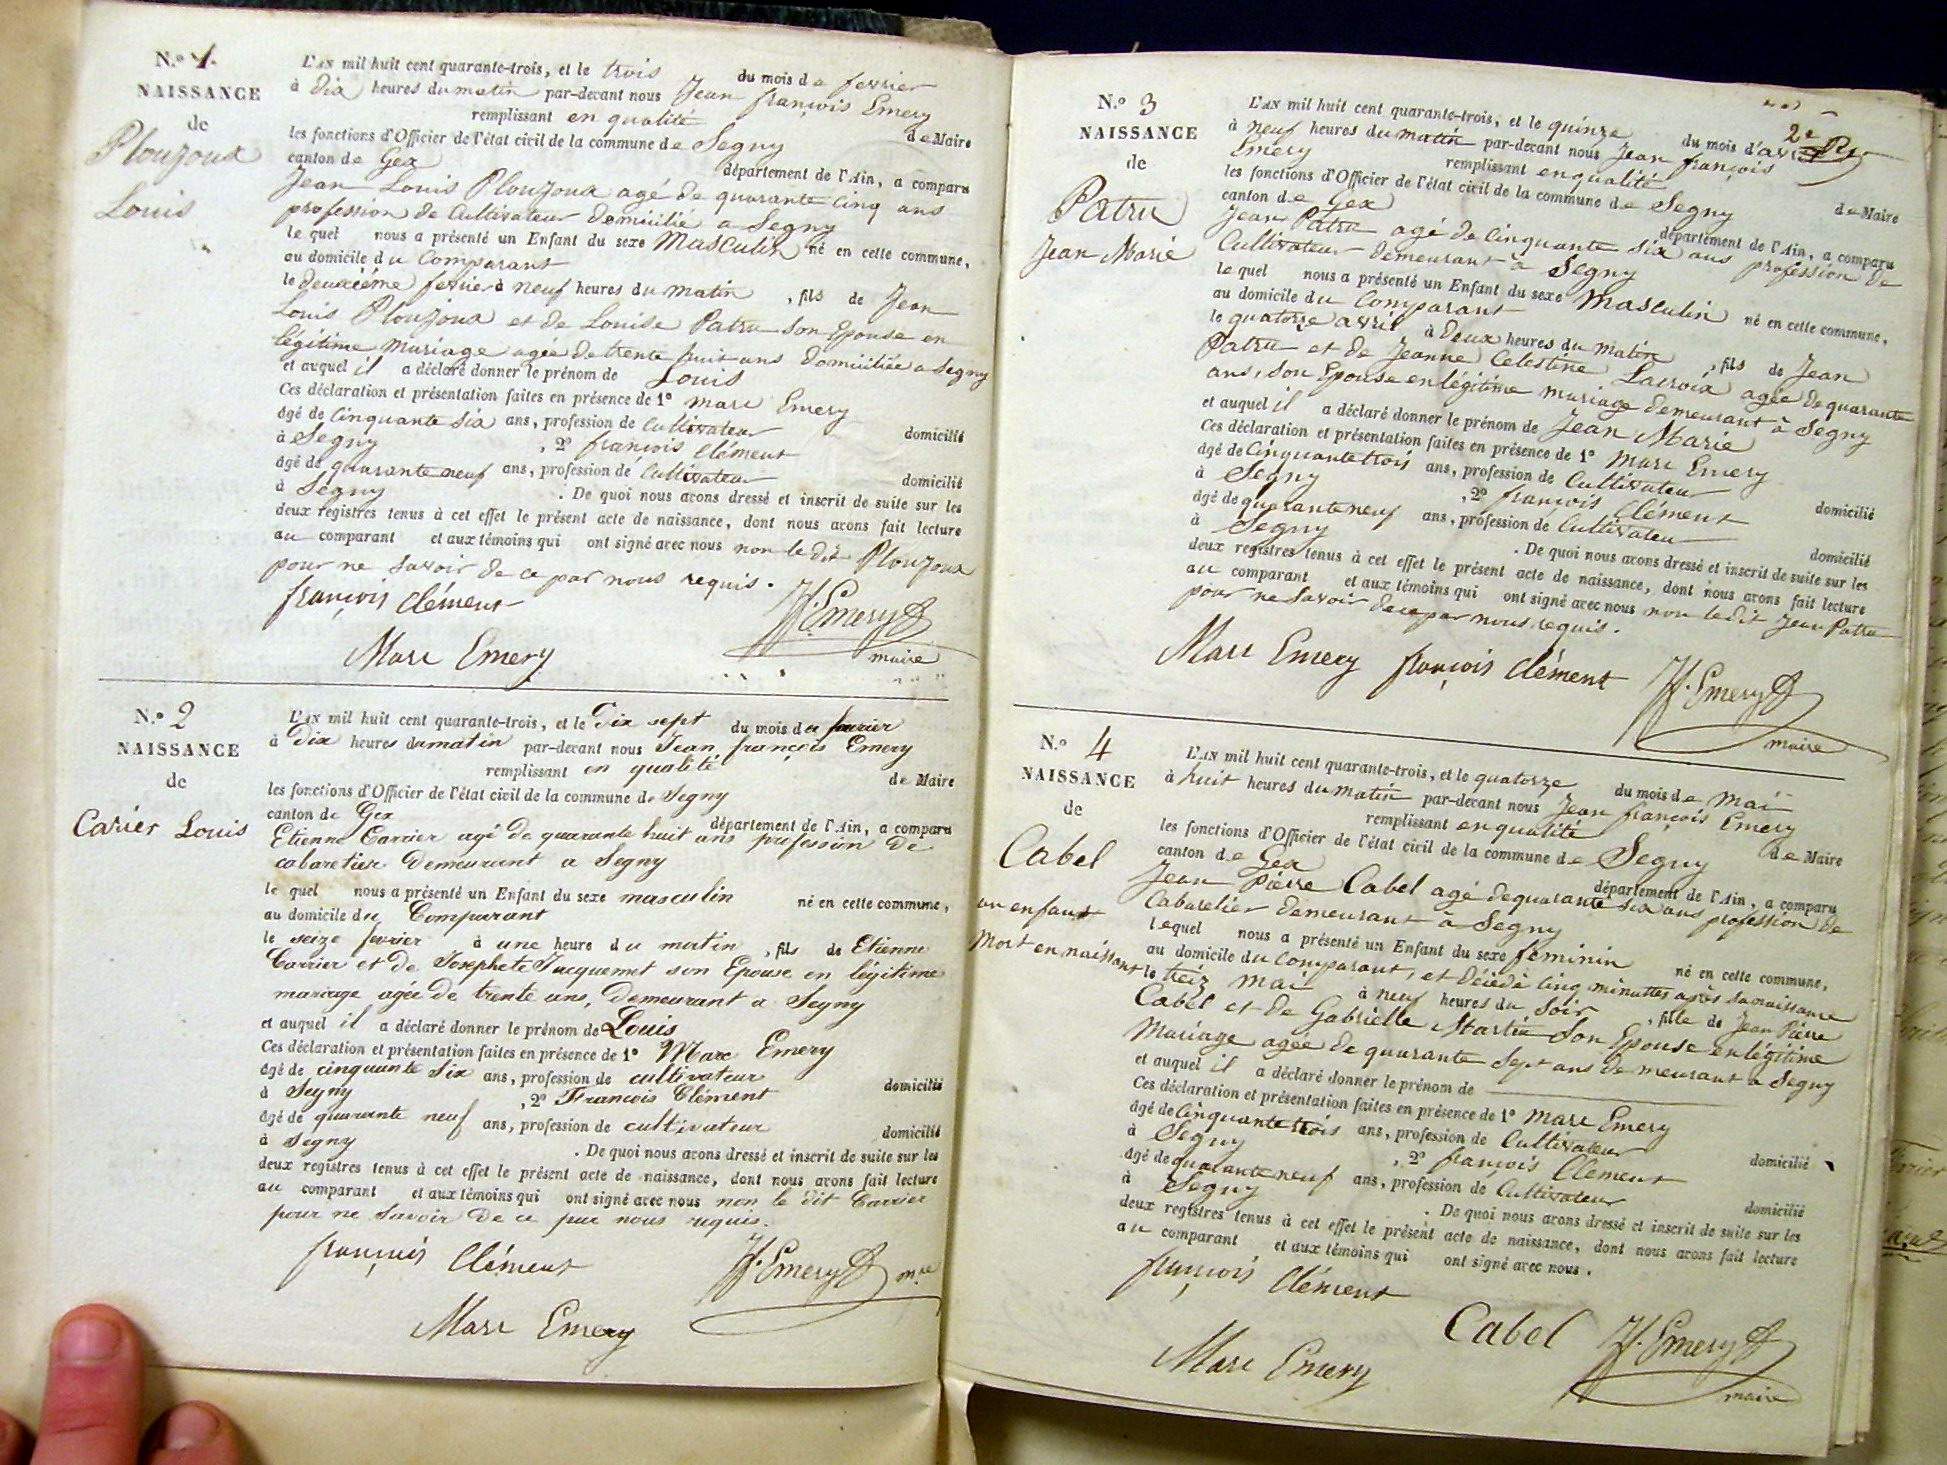 N.º 1.
NAISSANCE
de
Ploujoux
Louis
L'AN mil huit cent quarante-trois, et le trois du mois de fevrier
à Dix heures du matin par-devant nous Jean françois Emery
remplissant en qualité de Maire
les fonctions d'Officier de l'état civil de la commune de Segny
canton de Gex département de l'Ain, a comparu
Jean Louis Ploujoux agé de quarante cinq ans
profession de Cultivateur domicilié a Segny
le quel nous a présenté un Enfant du sexe Masculin né en cette commune,
au domicile du Comparant
le deuxiéme fevrier à neuf heures du matin, fils de Jean
Louis Ploujoux et de Louise Patru son Epouse en
légitime mariage agée de trente huit ans domiciliée a Segny
et auquel il a déclaré donner le prénom de Louis
Ces déclaration et présentation faites en présence de 1º Marc Emery
âgé de Cinquante six ans, profession de Cultivateur domicilié
à Segny, 2º françois Clément
âgé de quarante neuf ans, profession de Cultivateur domicilié
à Segny. De quoi nous avons dressé et inscrit de suite sur les
deux registres tenus à cet effet le présent acte de naissance, dont nous avons fait lecture
au comparant et aux témoins qui ont signé avec nous non le dit Ploujoux
pour ne savoir de ce par nous requis.
françois Clément J.f. Emery
Marc Emery maire
N.º 2
NAISSANCE
de
Carier Louis
L'AN mil huit cent quarante-trois, et le Dix sept du mois de fevrier
à Dix heures du matin par-devant nous Jean françois Emery
remplissant en qualité de Maire
les fonctions d'Officier de l'état civil de la commune de Segny
canton de Gex département de l'Ain, a comparu
Etienne Carrier agé de quarante huit ans profession de
cabaretier Demeurant a Segny
le quel nous a présenté un Enfant du sexe masculin né en cette commune,
au domicile du Comparant
le seize fevrier à une heure du matin, fils de Etienne
Carrier et de Josephete Jacquemet son Epouse en légitime
mariage agée de trente ans, Demeurant a Segny
et auquel il a déclaré donner le prénom de Louis
Ces déclaration et présentation faites en présence de 1º Marc Emery
âgé de cinquante six ans, profession de cultivateur domicilié
à Segny, 2º François Clément
âgé de quarante neuf ans, profession de cultivateur domicilié
à Segny. De quoi nous avons dressé et inscrit de suite sur les
deux registres tenus à cet effet le présent acte de naissance, dont nous avons fait lecture
au comparant et aux témoins qui ont signé avec nous non le dit Carrier
pour ne savoir De ce par nous requis.
françois Clément J.f. Emery mre
Marc Emery
2e
N.º 3
NAISSANCE
de
Patru
Jean Marie
L'AN mil huit cent quarante-trois, et le quinze du mois d'avril
à neuf heures du matin par-devant nous Jean françois
Emery remplissant en qualité de Maire
les fonctions d'Officier de l'état civil de la commune de Segny
canton de Gex département de l'Ain, a comparu
Jean Patru agé de Cinquante six ans profession de
Cultivateur demeurant à Segny
le quel nous a présenté un Enfant du sexe Masculin né en cette commune,
au domicile du Comparant
le quatorze avril à Deux heures du Matin, fils de Jean
Patru et de Jeanne Celestine Lacroix agée de quarante
ans, son Epouse en légitime mariage demeurant à Segny
et auquel il a déclaré donner le prénom de Jean Marie
Ces déclaration et présentation faites en présence de 1º Marc Emery
âgé de Cinquante trois ans, profession de Cultivateur domicilié
à Segny, 2º françois Clément
âgé de quarante neuf ans, profession de Cultivateur domicilié
à Segny. De quoi nous avons dressé et inscrit de suite sur les
deux registres tenus à cet effet le présent acte de naissance, dont nous avons fait lecture
au comparant et aux témoins qui ont signé avec nous non le dit Jean Patru
pour ne savoir de ce par nous requis.
Marc Emery françois Clément J.f. Emery
maire
N.º 4
NAISSANCE
de
Cabel
un enfant
Mort en naissant
L'AN mil huit cent quarante-trois, et le quatorze du mois de Mai
à huit heures du matin par-devant nous Jean françois Emery
remplissant en qualité de Maire
les fonctions d'Officier de l'état civil de la commune de Segny
canton de Gex département de l'Ain, a comparu
Jean Pierre Cabel agé de quarante six ans profession de
Cabaretier demeurant à Segny
lequel nous a présenté un Enfant du sexe feminin né en cette commune,
au domicile du comparant, et décédé cinq minuttes après sa naissance
le treiz mai à neuf heures du soir, fille de Jean Pierre
Cabel et de Gabrielle Martin Son Epouse en légitime
Mariage agée de quarante sept ans demeurant a Segny
et auquel il a déclaré donner le prénom de
Ces déclaration et présentation faites en présence de 1º Marc Emery
âgé de Cinquante trois ans, profession de Cultivateur domicilié
à Segny, 2º françois Clément
âgé de quarante neuf ans, profession de Cultivateur domicilié
à Segny. De quoi nous avons dressé et inscrit de suite sur les
deux registres tenus à cet effet le présent acte de naissance, dont nous avons fait lecture
au comparant et aux témoins qui ont signé avec nous.
françois Clément
Cabel J.f. Emery
Marc Emery maire